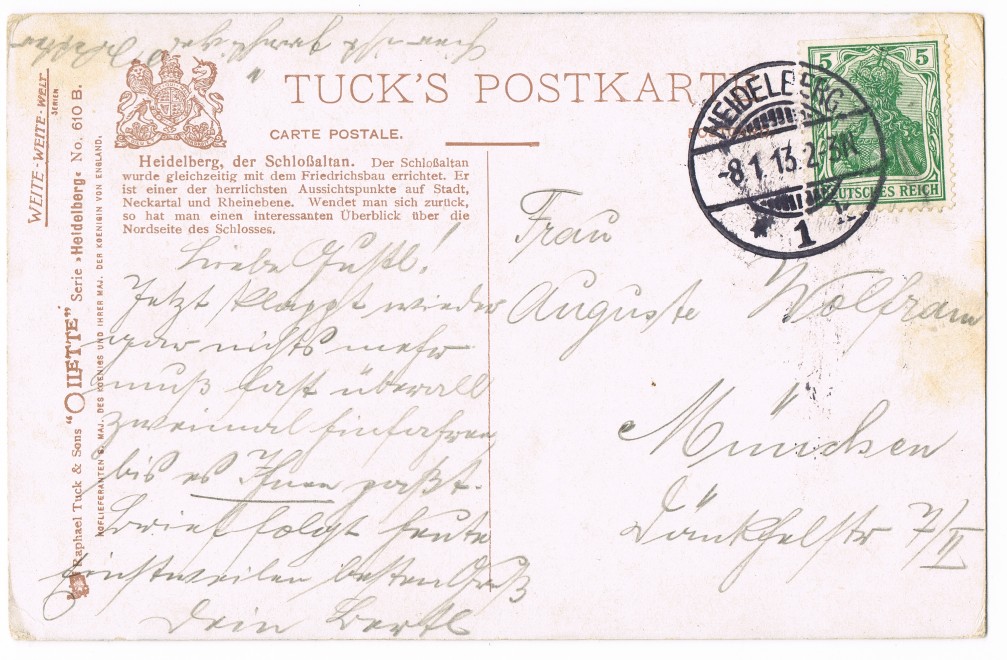 TUCK'S POSTKART
CARTE POSTALE.
Heidelberg, der Schloßaltan. Der Schloßaltan
wurde gleichzeitig mit dem Friedrichsbau errichtet. Er
ist einer der herrlichsten Aussichtspunkte auf Stadt,
Neckartal und Rheinebene. Wendet man sich zurück,
so hat man einen interessanten Überblick über die
Nordseite des Schlosses.
WEITE-WEITE-WELT
SERIEN
Raphael Tuck & Sons "OILETTE" Serie »Heidelberg« No. 610 B.
HOFLIEFERANTEN S. MAJ. DES KOENIGS UND IHRER MAJ. DER KOENIGIN VON ENGLAND.
Liebe Gustl!
Jetzt klappt wieder
gar nichts mehr
muß fast überall
zweimal hinfahren
bis es Ihnen paßt.
Brief folgt heute
Einstweilen besten Gruß
Dein Bertl
HEIDELBERG
-8.1.13.2-3N
* 1
5 5
DEUTSCHES REICH
Frau
Auguste Wolfram
München
7/II